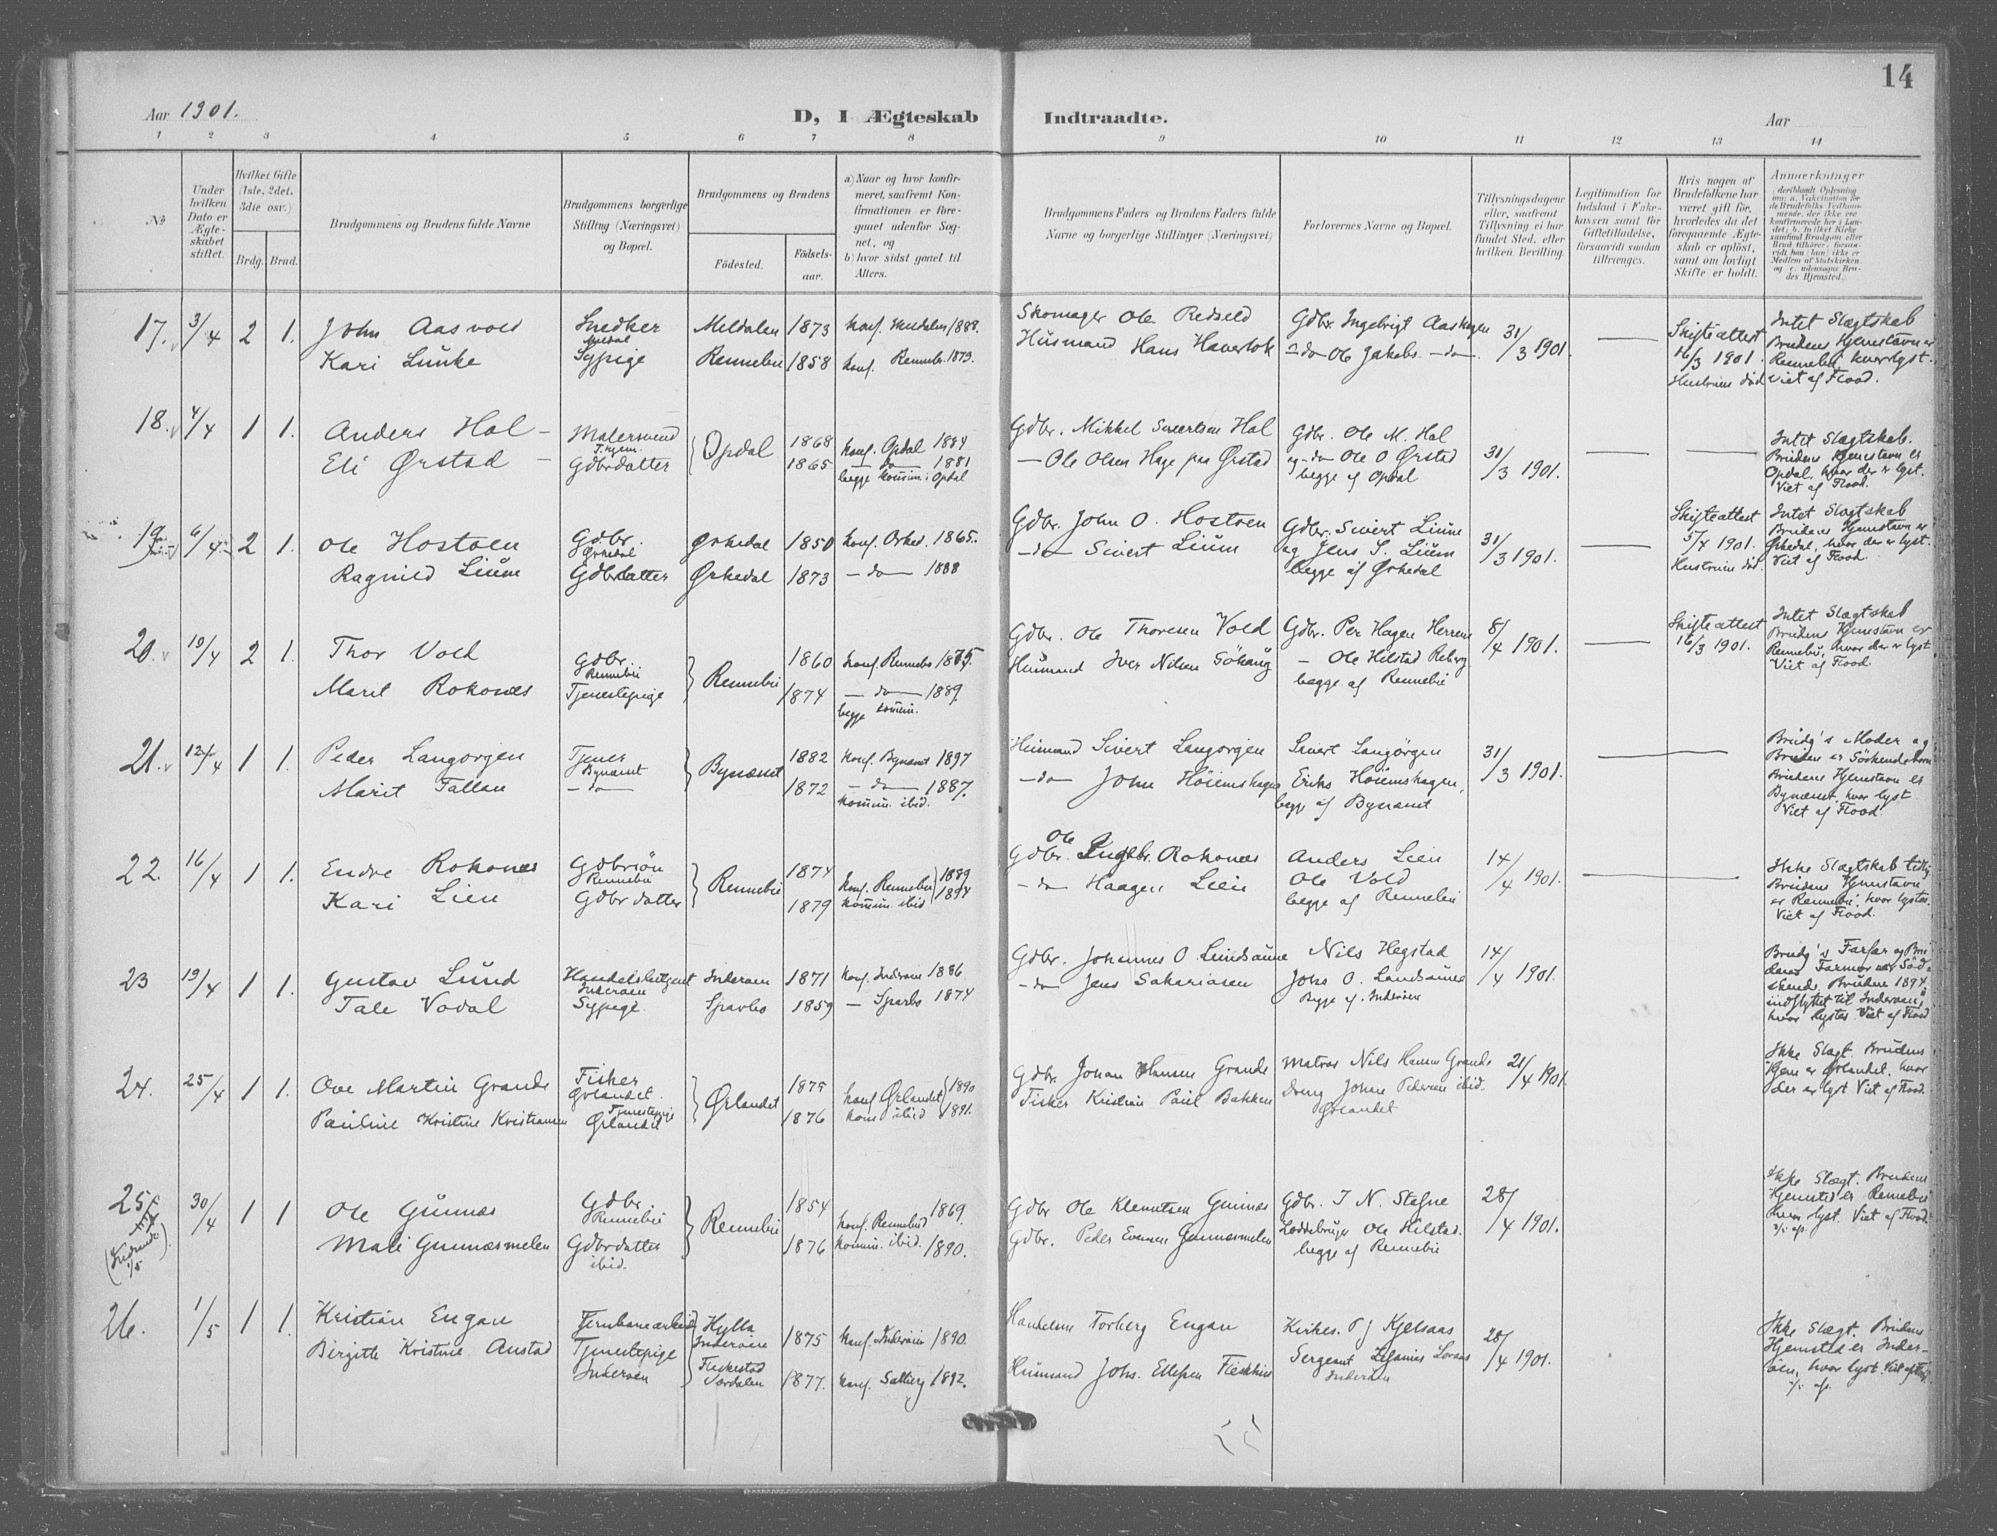 14
Aar 1901.
D, I Ægteskab Indtraadte.
Aar
1 2 3 4 5 6 7 8 9 10 11 12 13 14
No
Under hvilken Dato er Ægteskabet stiftet.
Hvilket Gifte (1ste, 2det, 3die osv.)
Brdg. Brud.
Brudgommens og Brudens fulde Navne
Brudgommens borgerlige Stilling (Næringsvei) og Bopæl.
Brudgommens og Brudens
Fødested. Fødselsaar.
a) Naar og hvor konfirmeret, saafremt Konfirmationen er foregaaet udenfor Sognet, og
b) hvor sidst gaaet til Alters.
Brudgommens Faders og Brudens Faders fulde Navne og borgerlige Stillinger (Næringsvei)
Forlovernes Navne og Bopæl.
Tillysningsdagene eller, saafremt Tillysning ei har fundet Sted, efter hvilken Bevilling.
Legitimation for Indskud i Enkekassen samt for Giftetilladelse, forsaavidt saadan tiltrænges.
Hvis nogen af Brudefolkene har været gift før, hvorledes da det foregaaende Ægteskab er opløst, samt om lovligt Skifte er holdt.
Anmerkninger
17. 3/4 2 1. John Aasvold Snedker Meldalen 1873 Konf. Meldalen 1888. Skomager Ole Gdbr. Ingebrigt Aashagen 31/3 1901. Skifteattest 16/3 1901. Hustruen død Intet Slægtskab
Kari Lunke Sypige Rennebu 1858 Konf. Rennebu 1873. Husmand Hans Haverlok Ole Jakobs. —do— Brudens Hjemstavn er Rennebu, hvor lyst. Viet af Flood.
18. 4/4 1 1. Anders Hol Malersvend Opdal 1868 Konf. Opdal 1884 Gdbr. Mikkel Sivertsen Hol Gdbr. Ole M. Hol 31/3 1901. Intet Slægtskab.
Eli Ørstad Gdbrdatter 1865 —do— 1881 begge komm. i Opdal — Ole Olsen Hage paa Ørstad og —do Ole O Ørstad begge af Opdal Brudens Hjemstavn er Opdal, hvor der er lyst. Viet af Flood.
19 6/4 2 1. Ole Hostoen Gdbr. Ørkedal Ørkedal 1850 Konf. Orked. 1865. Gdbr. John O. Hostoen Gdbr. Sivert Lium 31/3 1901. Skifteattest 5/4 1901. Hustruen død. Intet Slægtskab
Ragnild Lium Gdbrdatter Ørkedal 1873 —do— 1888 —do— Sivert Lium og Jens S. Lium begge af Ørkedal Brudens Hjemstavn er Ørkedal, hvor der er lyst. Viet af Flood.
20. 19/4 2 1. Thor Vold Gdbr. Rennebu Rennebu 1860 Konf. Rennebu 1875. Gdbr. Ole Thoresen Vold Gdbr. Per Hagen 8/4 1901. Skifteattest 16/3 1901. Intet Slægtskab
Marit Rokones Tjenestepige 1874 —do— 1889. begge komm. Husmand Iver Nilsen — Ole Hilstad begge af Rennebu Brudens Hjemstavn er Rennebu, hvor der er lyst Viet af Flood.
21. 12/4 1 1. Peder Langørgen Tjener Bynæset Bynæset 1882 Konf. Bynæset 1897 Husmand Sivert Langørgen Sivert Langørgen 31/3 1901. Brudg's Moder og
Marit Fallan —do— 1872 —do— 1887. komm. ibid. —do— John Høiemshagen Eriks Høiemshagen, begge af Bynæset Bruden er Søskendebørn Brudens Hjemstavn er Bynæset, hvor lyst Viet af Flood.
22. 16/4 1 1. Endre Rokones Gdbrsøn Rennebu Rennebu 1874 Konf. Rennebu 1889 Gdbr. Ole Ingebr. Rokones Anders Lien 14/4 1901. Ikke Slægtskab
Kari Lien Gdbrdatter 1879 komm. ibid 1894 —do Haagen Lien Ole Vold begge af Rennebu Brudens Hjemstavn er Rennebu, hvor lystes. Viet af Flood.
23 19/4 1 1. Gustav Lund Handelsbetjent Inderøen Inderøen 1871 Konf. Inderøen 1886 Gdbr. Johannes O. Lundsaune Nils Hegstad 14/4 1901. Brudg's Farfar og Brudens Farmor var Søskende.
Tale Vodal Sypige Sparbo 1859 — Sparbo 1874 —do Jens Sakariasen Johs O. Lundsaune Begge af Inderøen Bruden 1894 indflyttet til Inderøen, hvor lystes Viet af Flood
24. 25/4 1 1. Ove Martin Grande Fisker Ørlandet. Ørlandet 1875 Konf Ørlandet 1890 Gdbr. Johan Hansen Grande Matros Nils Hansen Grande 21/4 1901. Ikke Slægt. Brudens
Pauline Kristine Kristiansen Tjenestepige Ørlandet 1876 kom ibid 1891. Fisker Kristian Paul Bakken Dreng Johan Pedersen ibid. Ørlandet Hjem er Ørlandet, hvor der er lyst Viet af Flood.
25. 30/4 1 1 Ole Gunnes Gdbr. Rennebu Rennebu 1854 Konf. Rennebu 1869. Gdbr Ole Klemetsen Gunnes Gdbr. I N. Stafne 28/4 1901. Ikke Slægt. Brudens
Mali Gunnesmelen Gdbrdatter ibid. 1876 komm. ibid. 1890. Gdbr. Peder Evensen Gunnesmelen Ole Hilstad. begge af Rennebu Hjemsted er Rennebu hvor lyst. Viet af Flood.
26. 1/5 1 1. Kristian Engan Jernbanearbeid. Hylla Inderøen 1875 Konf. Inderøen 1890. Torberg Engan Kirkes. P J Kjelsaas 28/4 1901. Ikke Slægt. Brudens
Birgitte Kristine Austad Tjenestepige Inderøen Værdalen 1877. Konf. 1892. Husmand Johs. Ellefsen Sergeant Inderøen Hjemsted er Inderøen, hvor lyst. Viet af Flood